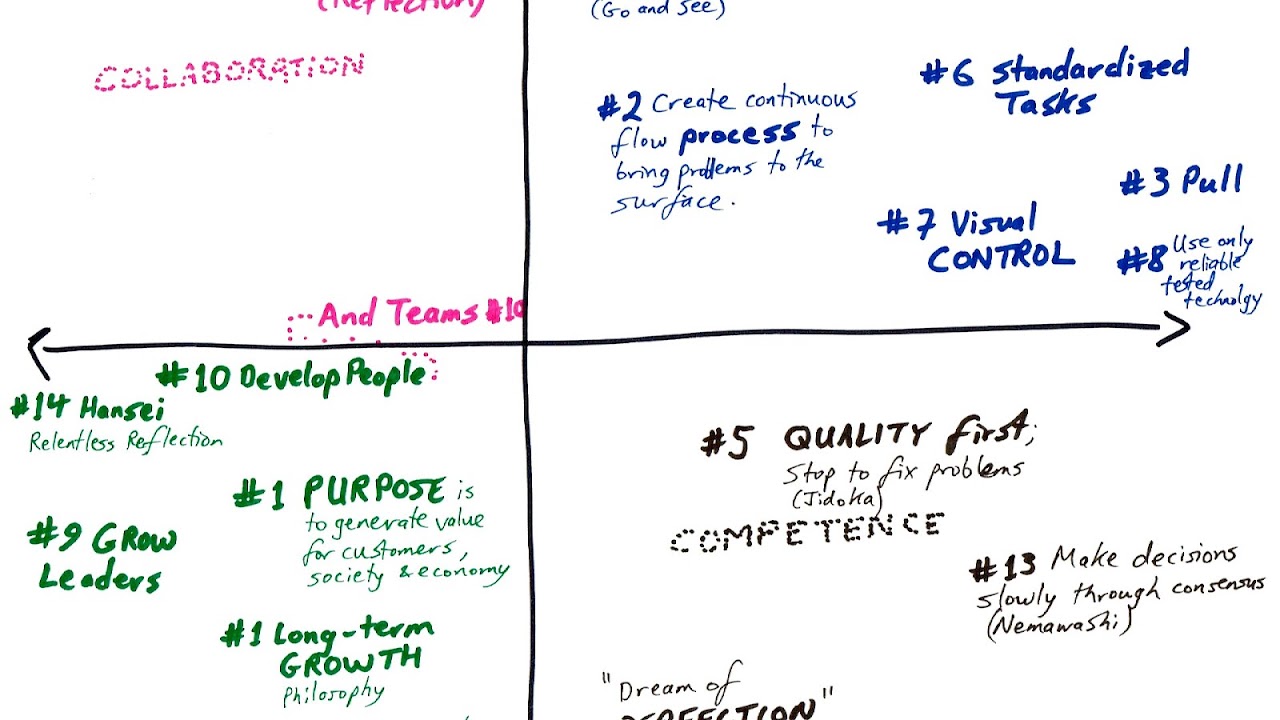 (Reflection)
COLLABORATION
And Teams #10
(Go and see)
#2 Create continuous
flow process to
bring problems to the
surface.
#6 Standardized
Tasks
#3 Pull
#7 Visual
CONTROL
#8 Use only
reliable
tested
technolgy
#10 Develop People
#14 Hansei
Relentless Reflection
#1 PURPOSE is
to generate value
for customers,
society & economy
#9 GROW
Leaders
#1 Long-term
GROWTH
Philosophy
#5 QUALITY first;
Stop to fix problems
(Jidoka)
COMPETENCE
#13 Make decisions
slowly through consensus
(Nemawashi)
"Dream of
PERFECTION"